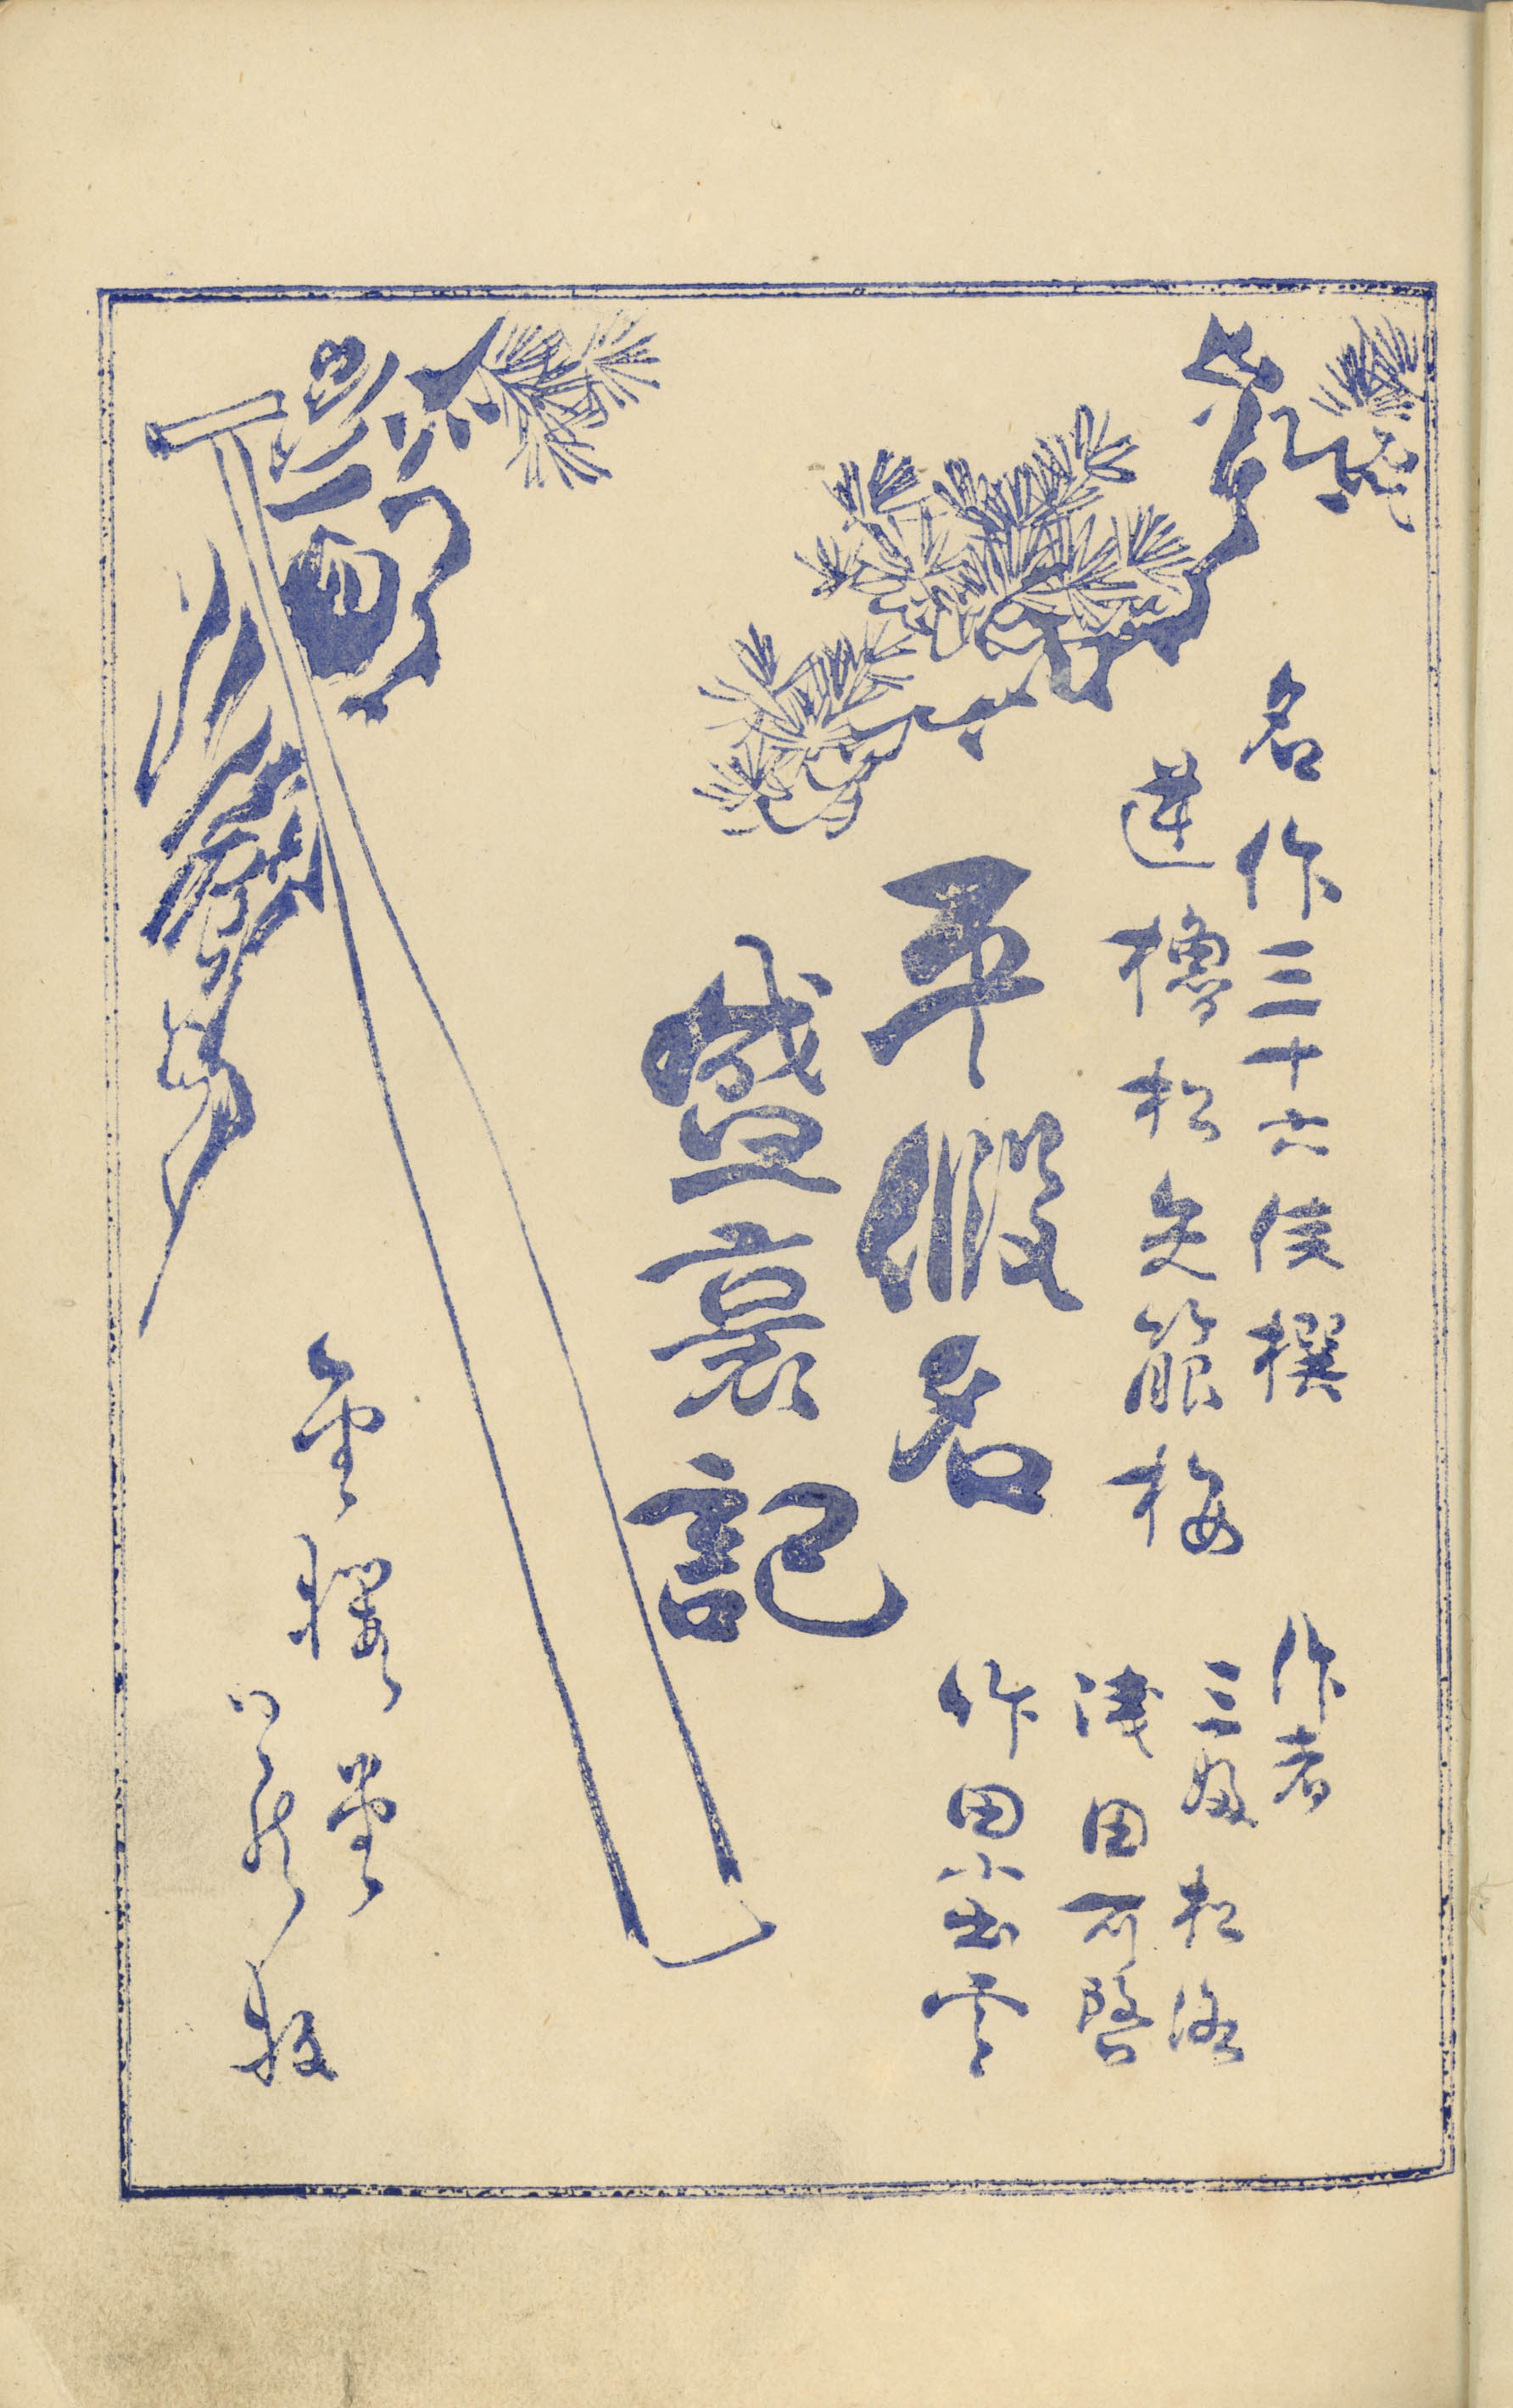 名作三十六佳撰
逆櫓松
矢箙梅
平假名
盛衰記
作者
三好松洛
淺田可啓
竹田小出雲
金櫻堂
梓